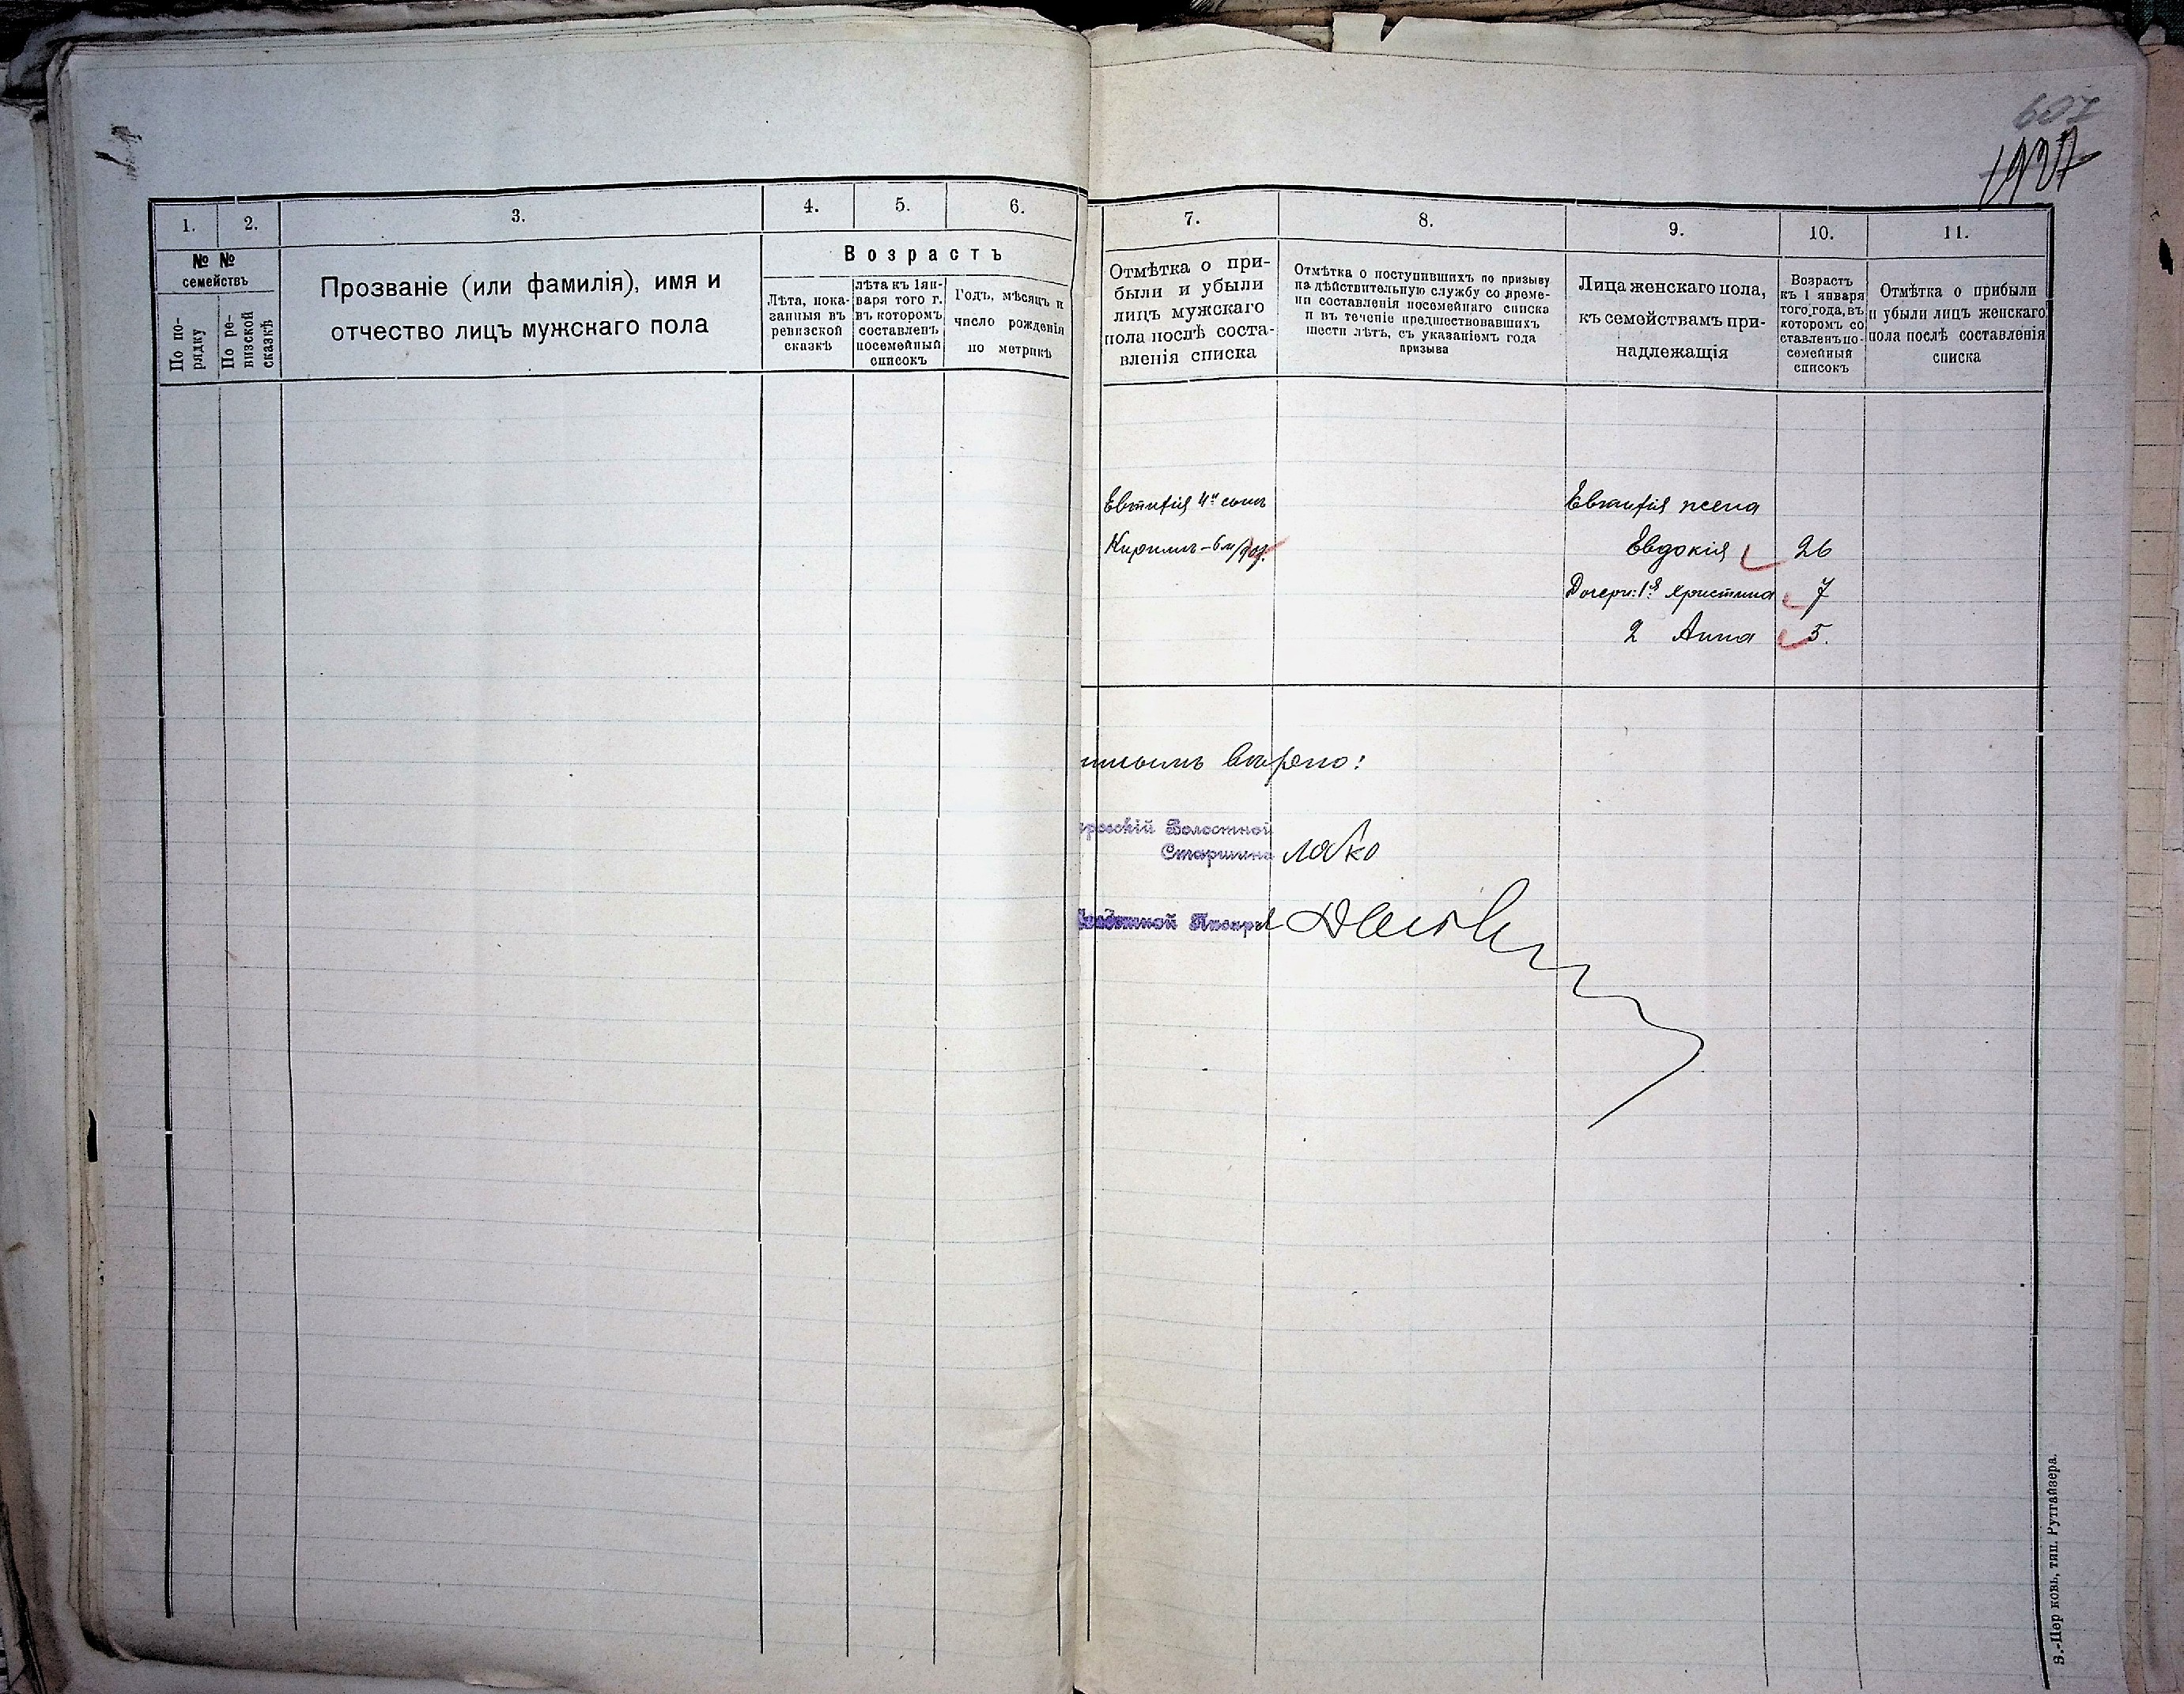 607
1927
1.
2.
3.
4.
5.
6.
№ №
семействъ
По по-
рядку
По ре-
визской
сказкѣ
Прозваніе (или фамилія), имя и
отчество лицъ мужскаго пола
Возрастъ
Лѣта, пока-
занныя въ
ревизской
сказкѣ
лѣта къ 1 ян-
варя того г.
въ которомъ
составленъ
посемейный
списокъ
Годъ, мѣсяцъ и
число рожденія
по метрикѣ
7.
8.
9.
10.
11.
Отмѣтка о при-
были и убыли
лицъ мужскаго
пола послѣ соста-
вленія списка
Отмѣтка о поступившихъ по призыву
на дѣйствительную службу со време-
ни составленія посемейнаго списка
и въ теченіе предшествовавшихъ
шести лѣтъ, съ указаніемъ года
призыва
Лица женскаго пола,
къ семействамъ при-
надлежащія
Возрастъ
къ 1 января
того года, въ
которомъ со
ставленъ по-
семейный
списокъ
Отмѣтка о прибыли
и убыли лицъ женскаго
пола послѣ составленія
списка
Евтифія 4й сынъ
Евтифія жена
Кириллъ - 6 м/
Евдокія 26
Дочери: 1я Христина 7
2 Анна 5.
вѣрно:
Волостной
Старшина
Писарь
З.-Цер ковь, тип. Рутгайзера.